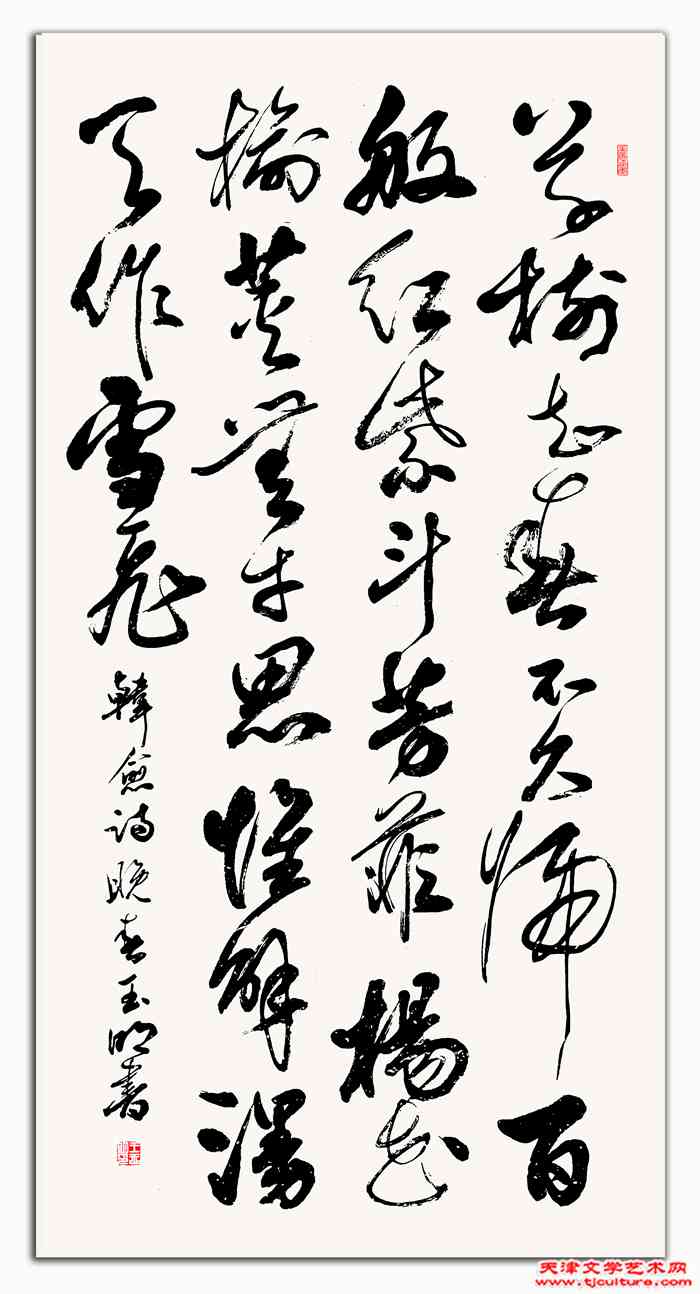 草樹知春不久歸百
般紅紫斗芳菲楊花
榆莢無才思惟解漫
天作雪飛
韓愈詩晚春玉明書
天津文学艺术网
www.tjculture.com